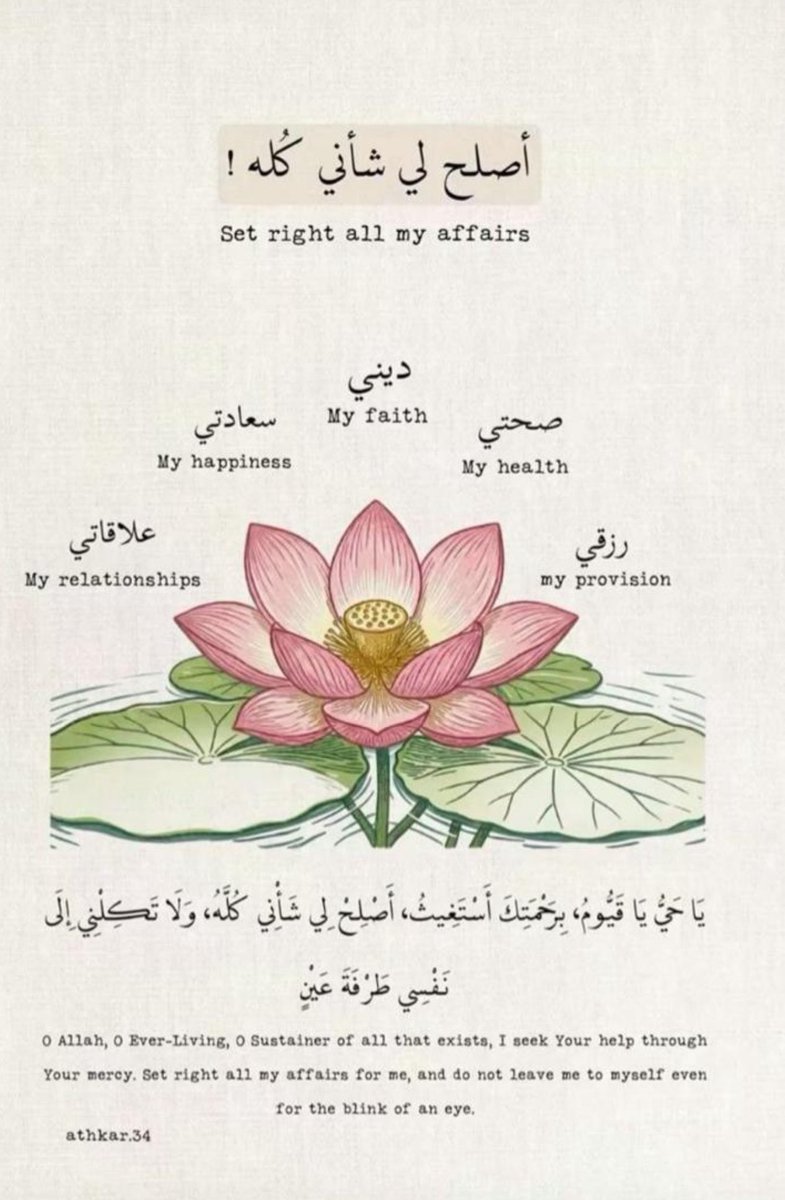 أصلح لي شأني كُله !
Set right all my affairs
ديني
My faith
سعادتي
My happiness
صحتي
My health
علاقاتي
My relationships
رزقي
my provision
يَا حَيُّ يَا قَيُّومُ، بِرَحْمَتِكَ أَسْتَغِيثُ، أَصْلِحْ لِي شَأْنِي كُلَّهُ، وَلَا تَكِلْنِي إِلَى
نَفْسِي طَرْفَةَ عَيْنٍ
O Allah, O Ever-Living, O Sustainer of all that exists, I seek Your help through
Your mercy. Set right all my affairs for me, and do not leave me to myself even
for the blink of an eye.
athkar.34